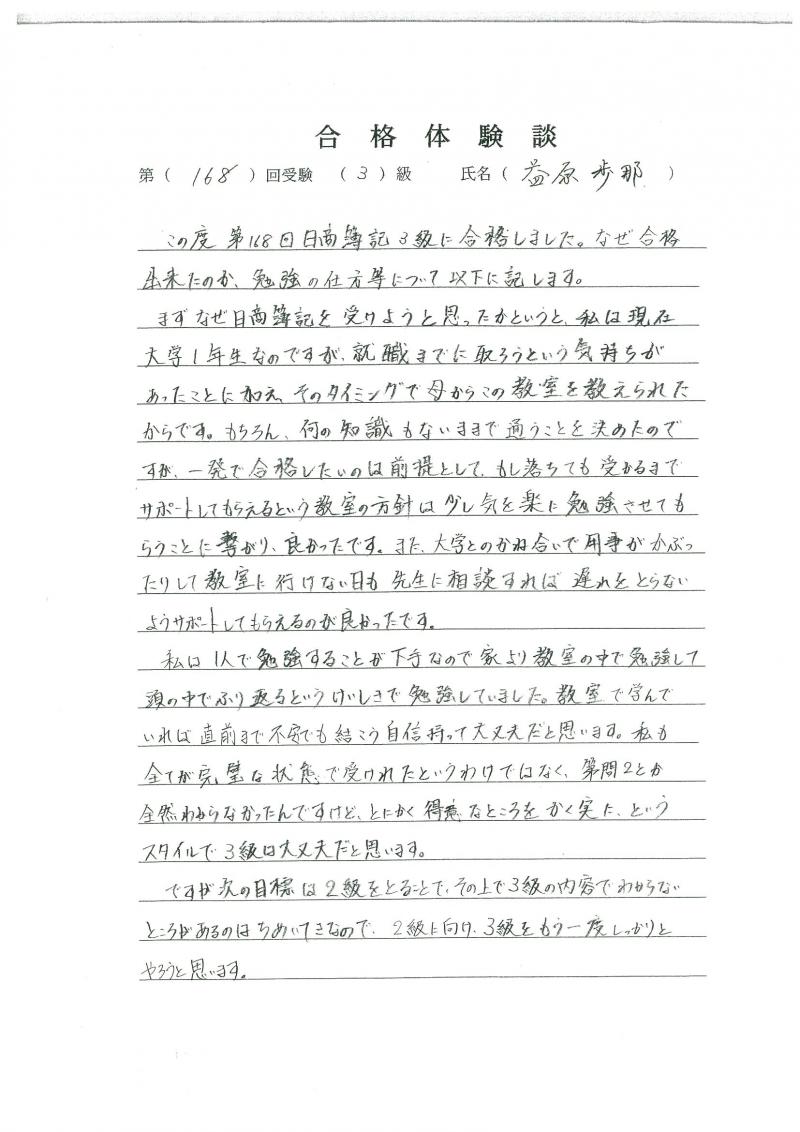 合格体験談
第（ 168 ）回受験 （ 3 ）級 氏名（ 益原 歩那 ）
この度 第168回日商簿記3級に合格しました。なぜ合格
出来たのか、勉強の仕方等について以下に記します。
まずなぜ日商簿記を受けようと思ったかというと、私は現在
大学1年生なのですが、就職までに取ろうという気持ちが
あったことに加え、そのタイミングで母からこの教室を教えられた
からです。もちろん、何の知識もないままで通うことを決めたので
すが、一発で合格したいのは前提として、もし落ちても受かるまで
サポートしてもらえるという教室の方針は少し気を楽に勉強させても
らうことに繋がり、良かったです。また、大学とのかね合いで用事がかぶっ
たりして教室に行けない日も先生に相談すれば遅れをとらない
ようサポートしてもらえるのが良かったです。
私は1人で勉強することが下手なので家より教室の中で勉強して
頭の中でふり返るというけいしきで勉強していました。教室で学んで
いれば直前まで不安でも結こう自信持って大丈夫だと思います。私も
全てが完璧な状態で受けれたというわけではなく、第問2とか
全然わからなかったんですけど、とにかく得意なところをかく実に、という
スタイルで3級は大丈夫だと思います。
ですが次の目標は2級をとることで、その上で3級の内容でわからない
ところがあるのはちめいてきなので、2級に向け、3級をもう一度しっかりと
やろうと思います。